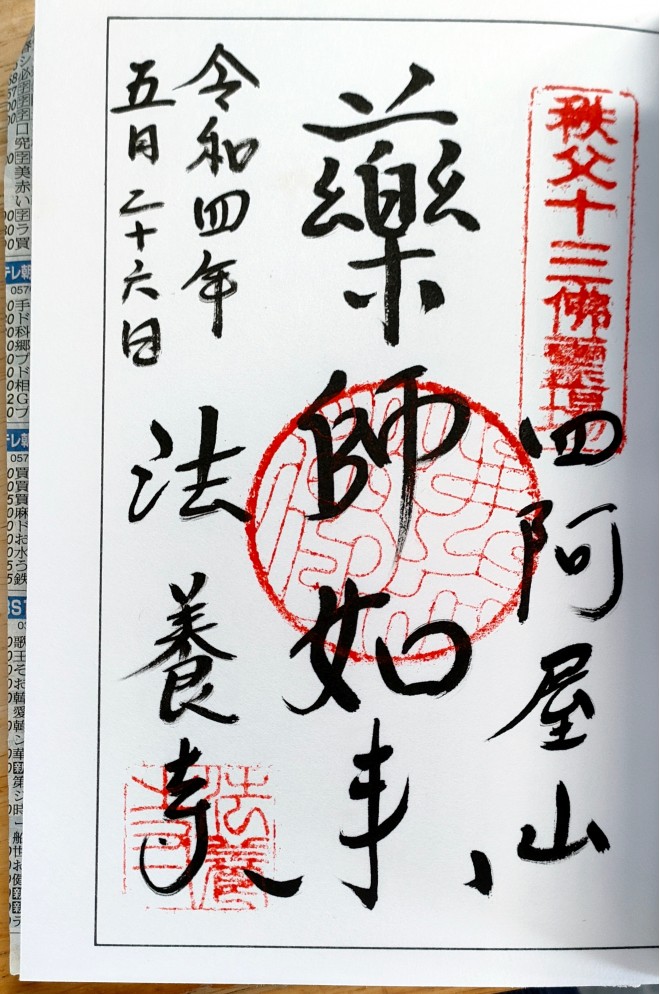 秩父十三佛霊場
四阿屋山
藥師如来
令和四年
五月二十六日
法養寺
法養寺